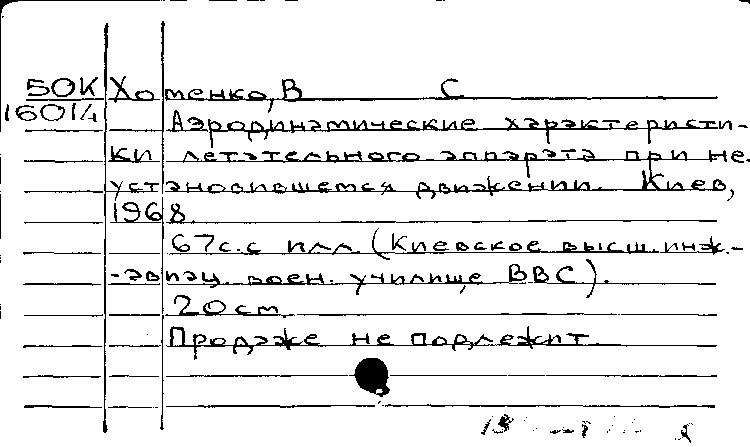 50К Хоменко, В С
16014
Аэродинамические характеристи-
ки летательного аппарата при не-
установившемся движении. Киев,
1968.
67с. с илл. (Киевское высш. инж.-
-авиац. воен. училище ВВС).
20 см.
Продаже не подлежит.